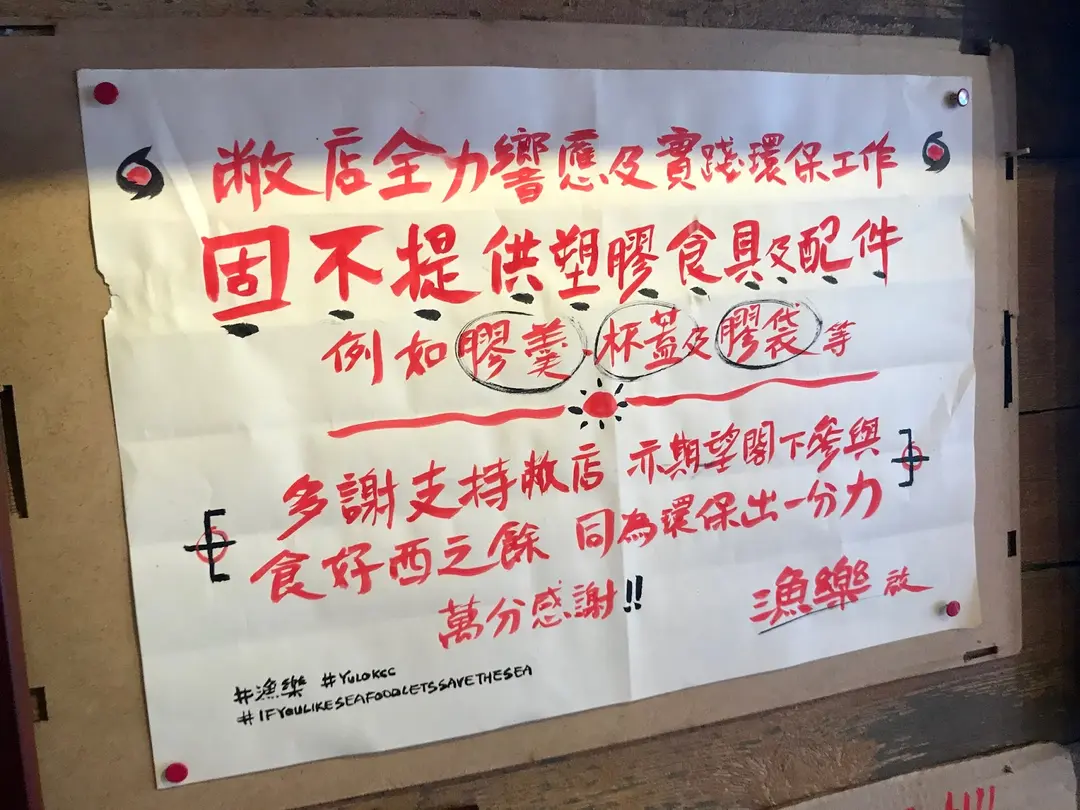 敝店全力響應及實踐環保工作
固不提供塑膠食具及配件
例如膠羹、杯蓋及膠袋等
多謝支持敝店 亦期望閣下參與
食好西之餘 同為環保出一分力
萬分感謝!!
漁樂 啟
#漁樂 #YULOKCC
#IFYOULIKESEAFOODLETSSAVETHESEA